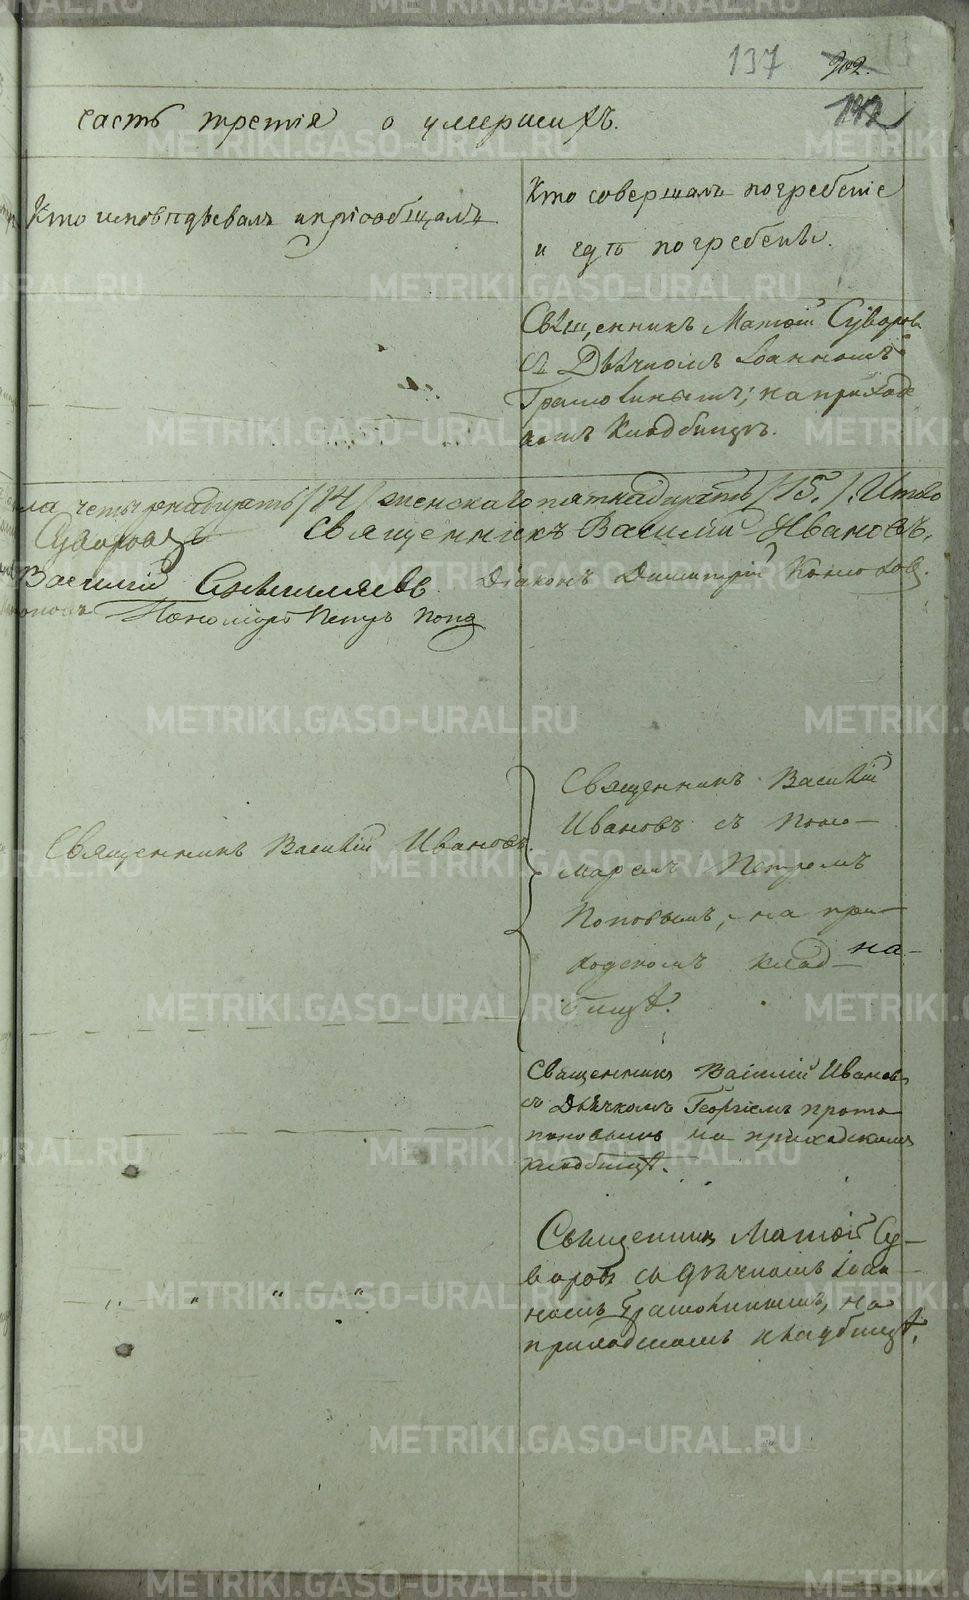 137 302.
142
часть третія о умершихъ.
Кто исповѣдывалъ и пріобщалъ
Кто совершалъ погребеніе
и гдѣ погребены.
Священникъ Матѳій Суворовъ
съ Дьячкомъ Іоанномъ
Грамолинымъ; на приход
скомъ кладбищѣ.
ла четырнадцать /14/ женскаго пятнадцать /15./. Итого
Суворовъ Священникъ Василій Ивановъ.
Василій Діаконъ Димитрій Кономовъ.
Пономарь Петръ Попо
Священникъ Василій Ивановъ.
Священникъ Василій
Ивановъ съ Поно-
маремъ Петромъ
Поповымъ, на при-
ходскомъ клад- на-
бищѣ.
Священникъ Василій Ивановъ
съ Дьячкомъ Георгіемъ Прото
поповымъ на приходскомъ
кладбищѣ.
Священникъ Матѳій Су-
воровъ съ дьячкомъ Іоан
номъ Грамолинымъ, на
приходскомъ кладбищѣ.
METRIKI.GASO-URAL.RU